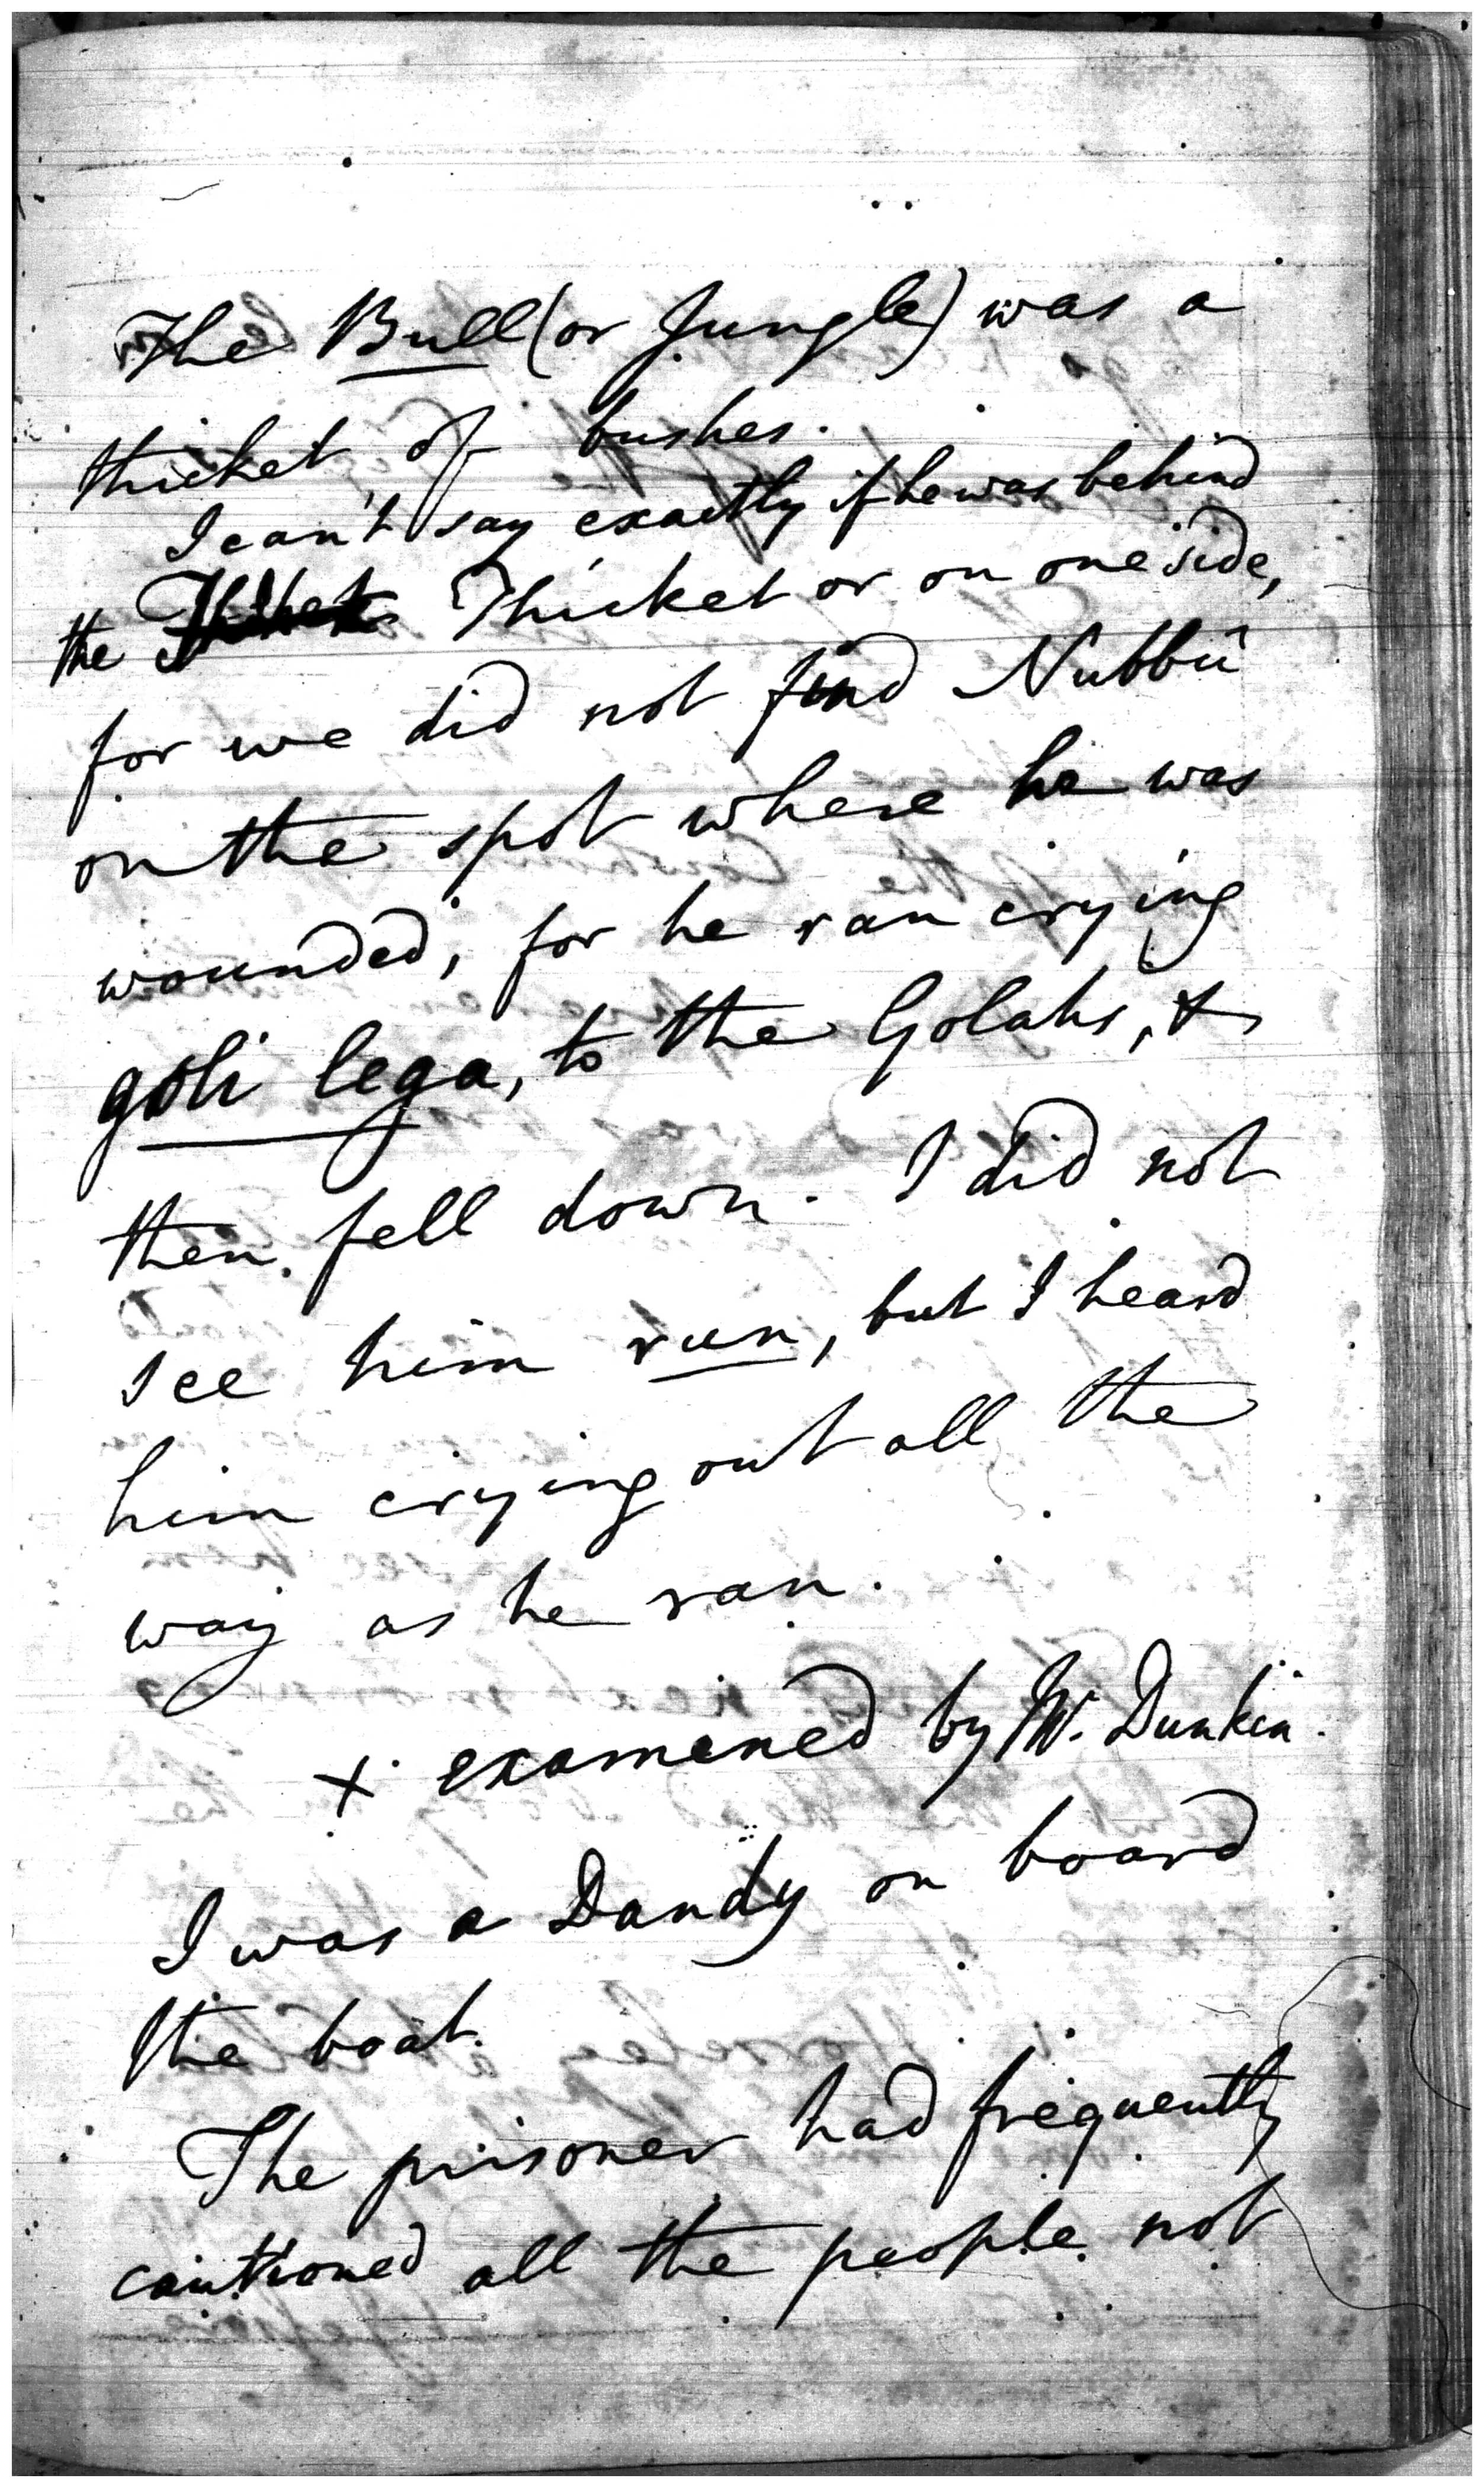 The Bull (or Jungle) was a
thicket of bushes.
I can't say exactly if he was behind
the Thicket or on one side,
for we did not find Nubbû
on the spot where he was
wounded, for he ran crying
goli lega, to the Golahs, &
then fell down. I did not
see him run, but I heard
him crying out all the
way as he ran.
x examened by Mr. Dunkin.
I was a Dandy on board
the boat.
The prisoner had frequently
cautioned all the people not